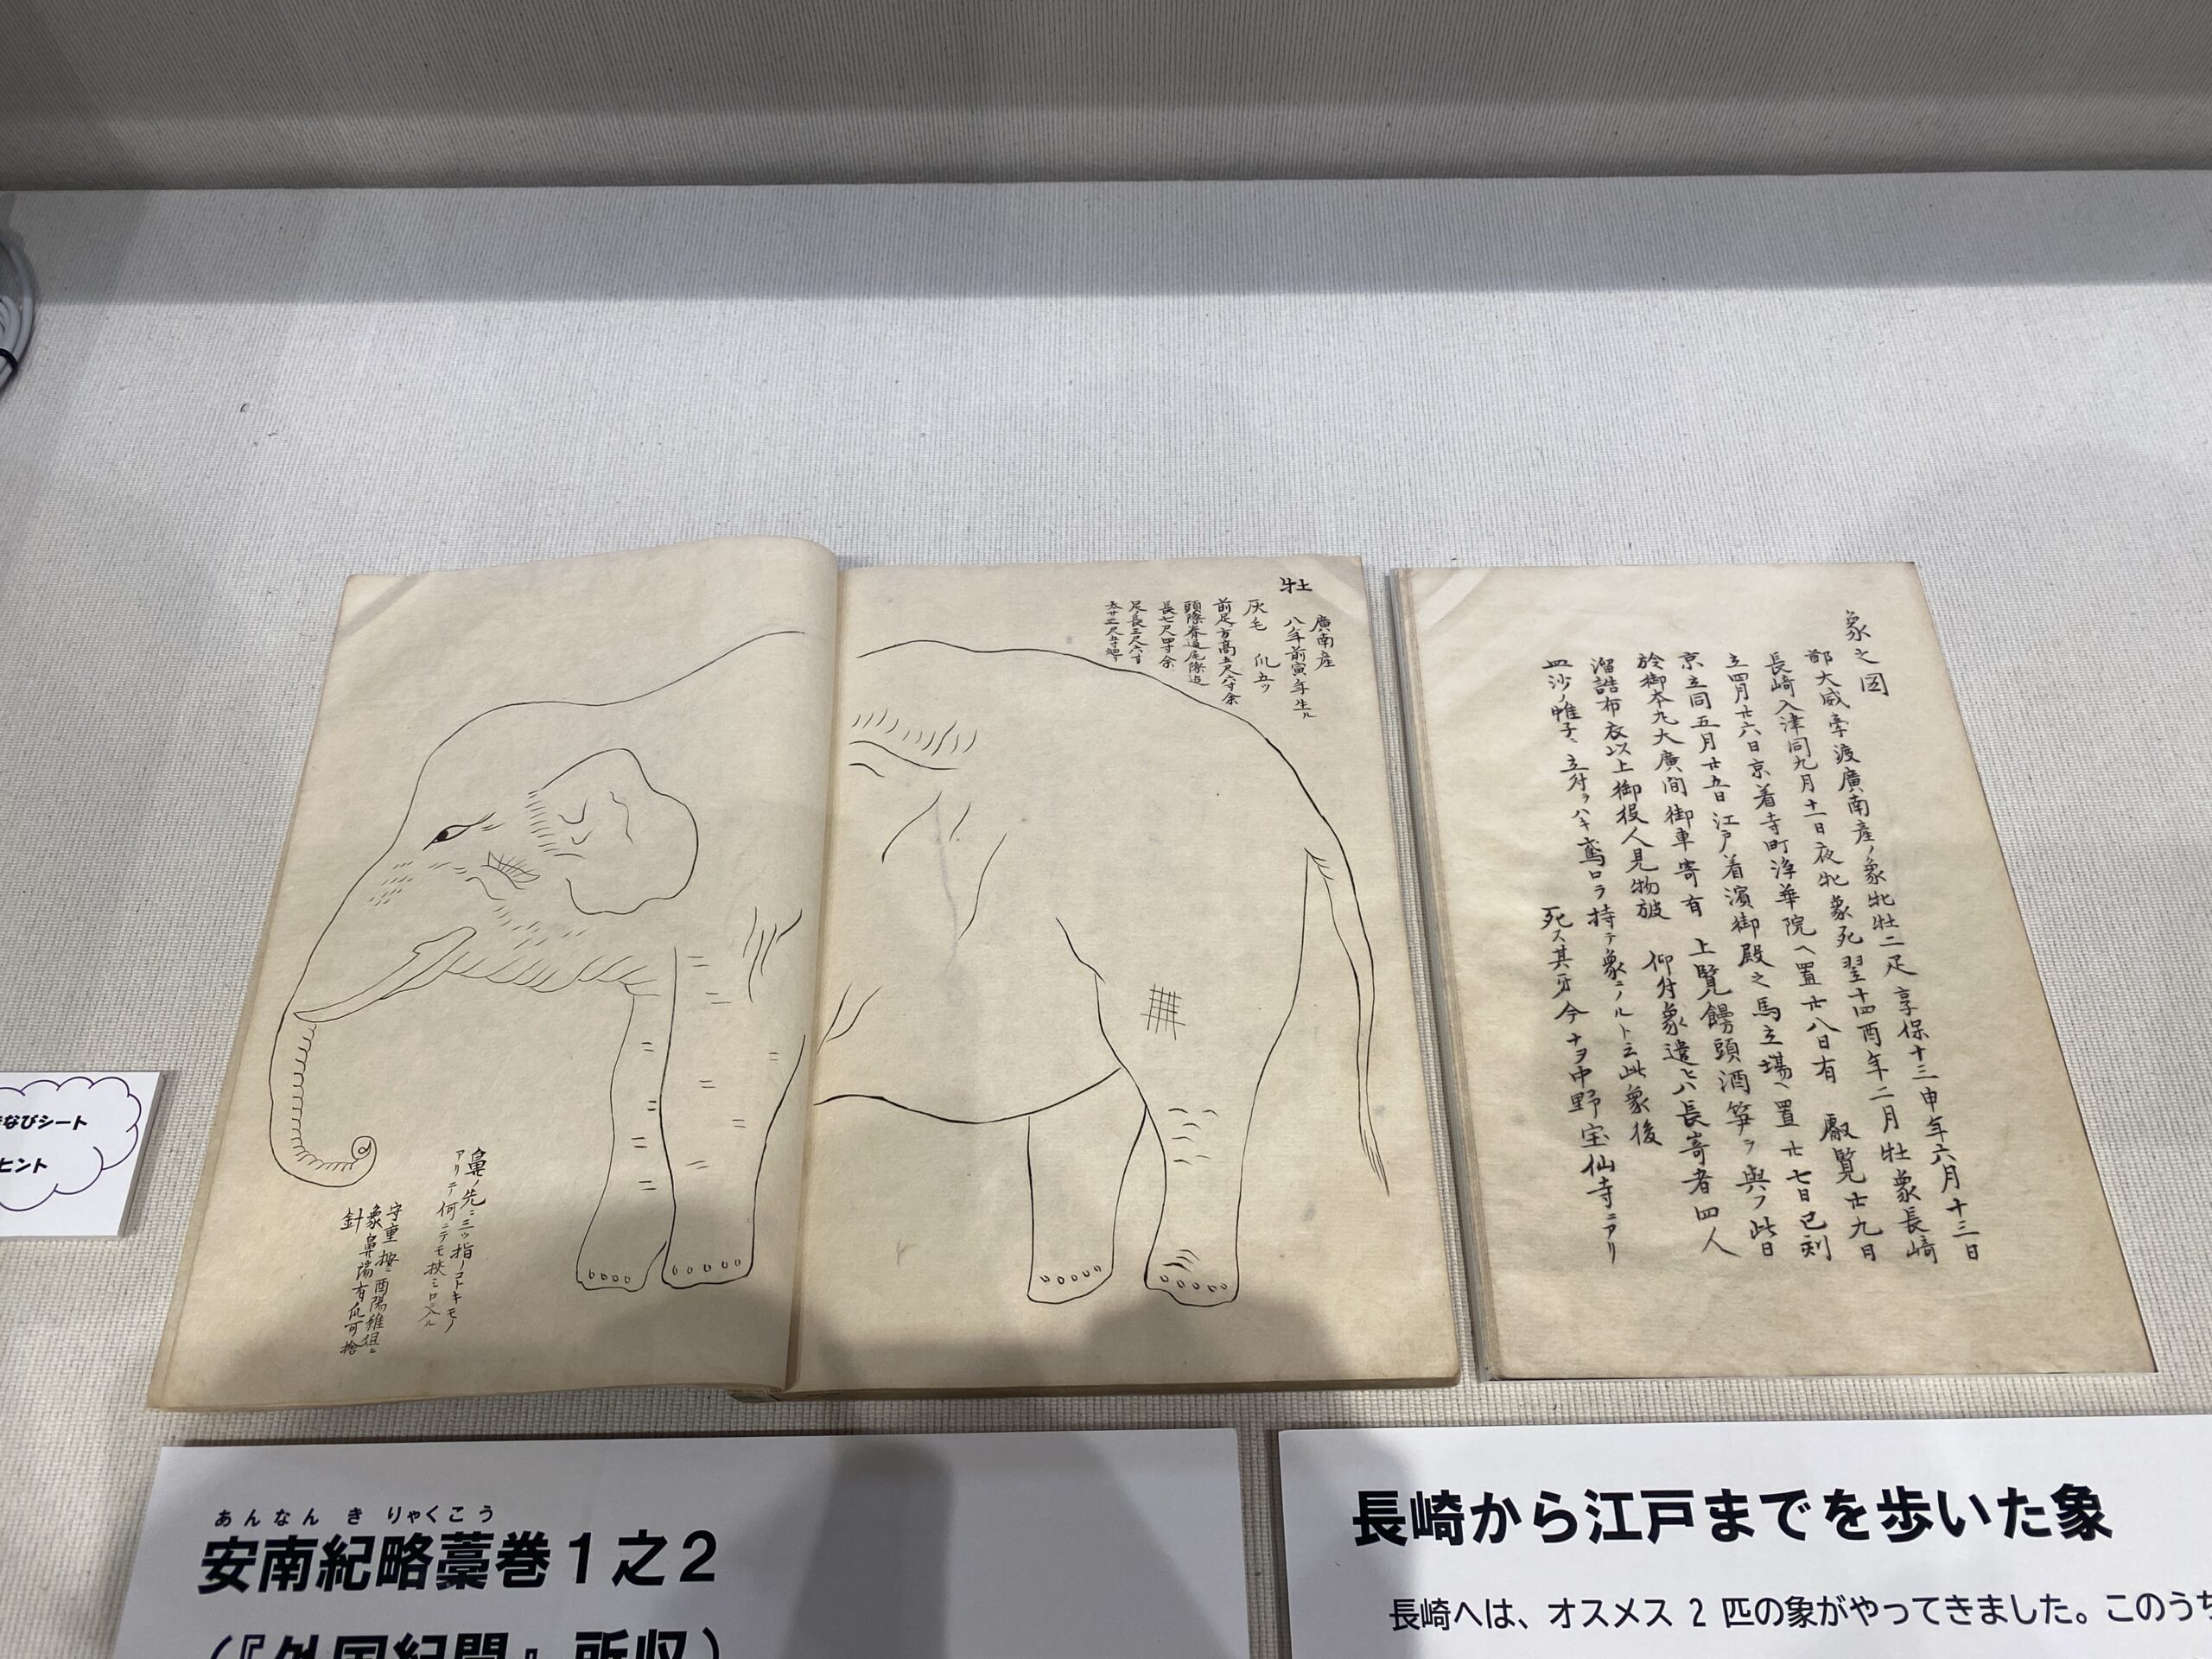 象之図
鄭大威牽渡廣南産ノ象牝牡二疋享保十三申年六月十三日
長崎入津同九月十一日夜牝象死翌十四酉年二月牡象長崎
立四月廿六日京着寺町浄華院ヘ置廿八日有 叡覧廿九日
京立同五月廿五日江戸着濱御殿之馬立場ヘ置廿七日已刻
於御本丸大廣間御車寄有 上覧饅頭酒笋ヲ與フ此日
溜詰布衣以上御役人見物被 仰付象遣ヒハ長嵜者四人
皿沙ノ帷子ニ立付ヲハキ鳶口ヲ持テ象ニノルト云此象後
死ス其牙今ナヲ中野宝仙寺ニアリ
牡
廣南産
八年前寅年生ル
灰毛 爪五ツ
前足方高五尺六寸余
頭際脊通尾際迠
長七尺四寸余
尾長三尺六寸
鼻ノ先ニ三ツ指ノコトキモノ
アリテ何ニテモ挾ミ口ヘ入ル
守重按酉陽雑俎ニ
象鼻端有爪可拾
針
なびシート
ヒント
あんなん き りゃくこう
安南紀略藁巻1之2
(『外国紀聞』所収)
長崎から江戸までを歩いた象
長崎へは、オスメス 2 匹の象がやってきました。このうち